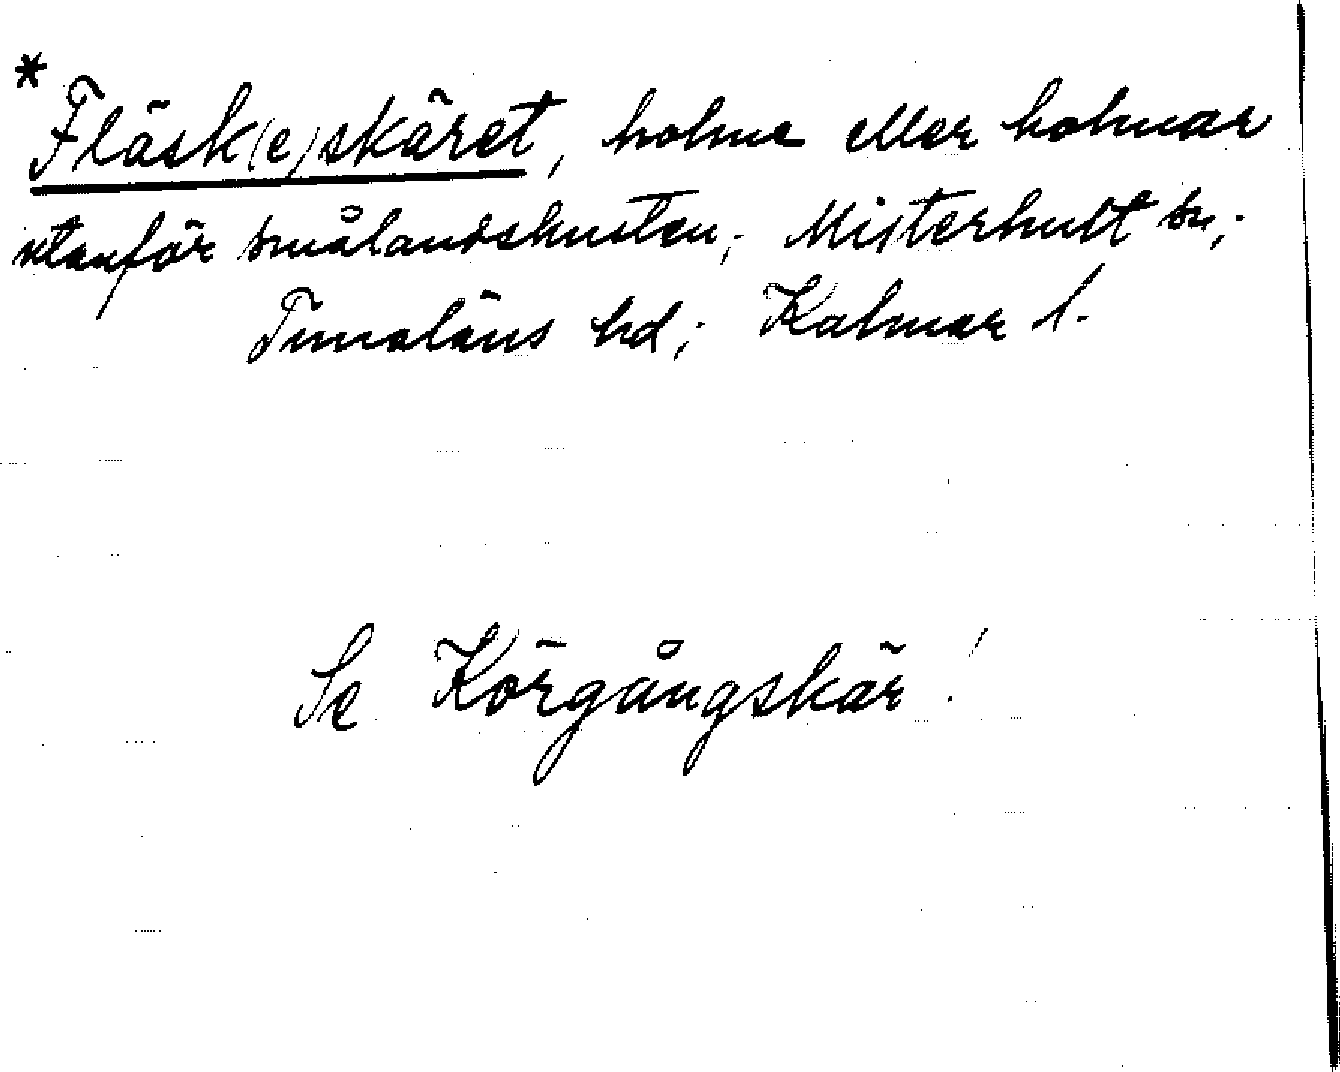 * Fläsk(e)skäret, holme eller holmar
utanför smålandskusten; Misterhult sn;
Tunaläns hd; Kalmar l.
Se Körgångskär!